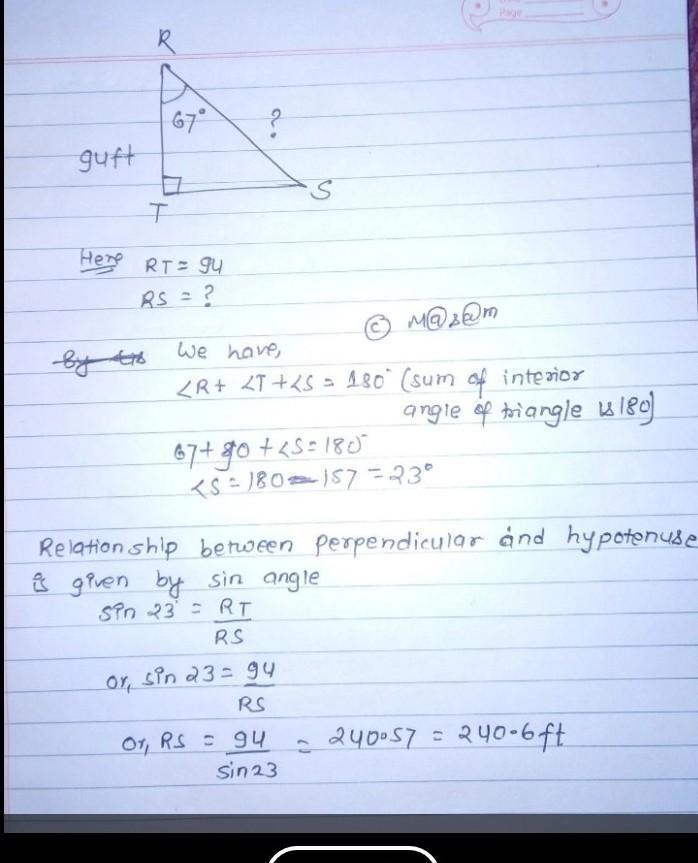 Page
R
67°
?
94ft
T
S
Here RT = 94
RS = ?
© M@s@m
We have,
∠R + ∠T + ∠S = 180° (sum of interior
angle of triangle is 180)
67 + 90 + ∠S = 180°
∠S = 180 - 157 = 23°
Relationship between perpendicular and hypotenuse
is given by sin angle
sin 23° = RT
RS
or, sin 23 = 94
RS
Or, RS = 94 = 240.57 = 240.6 ft
sin 23